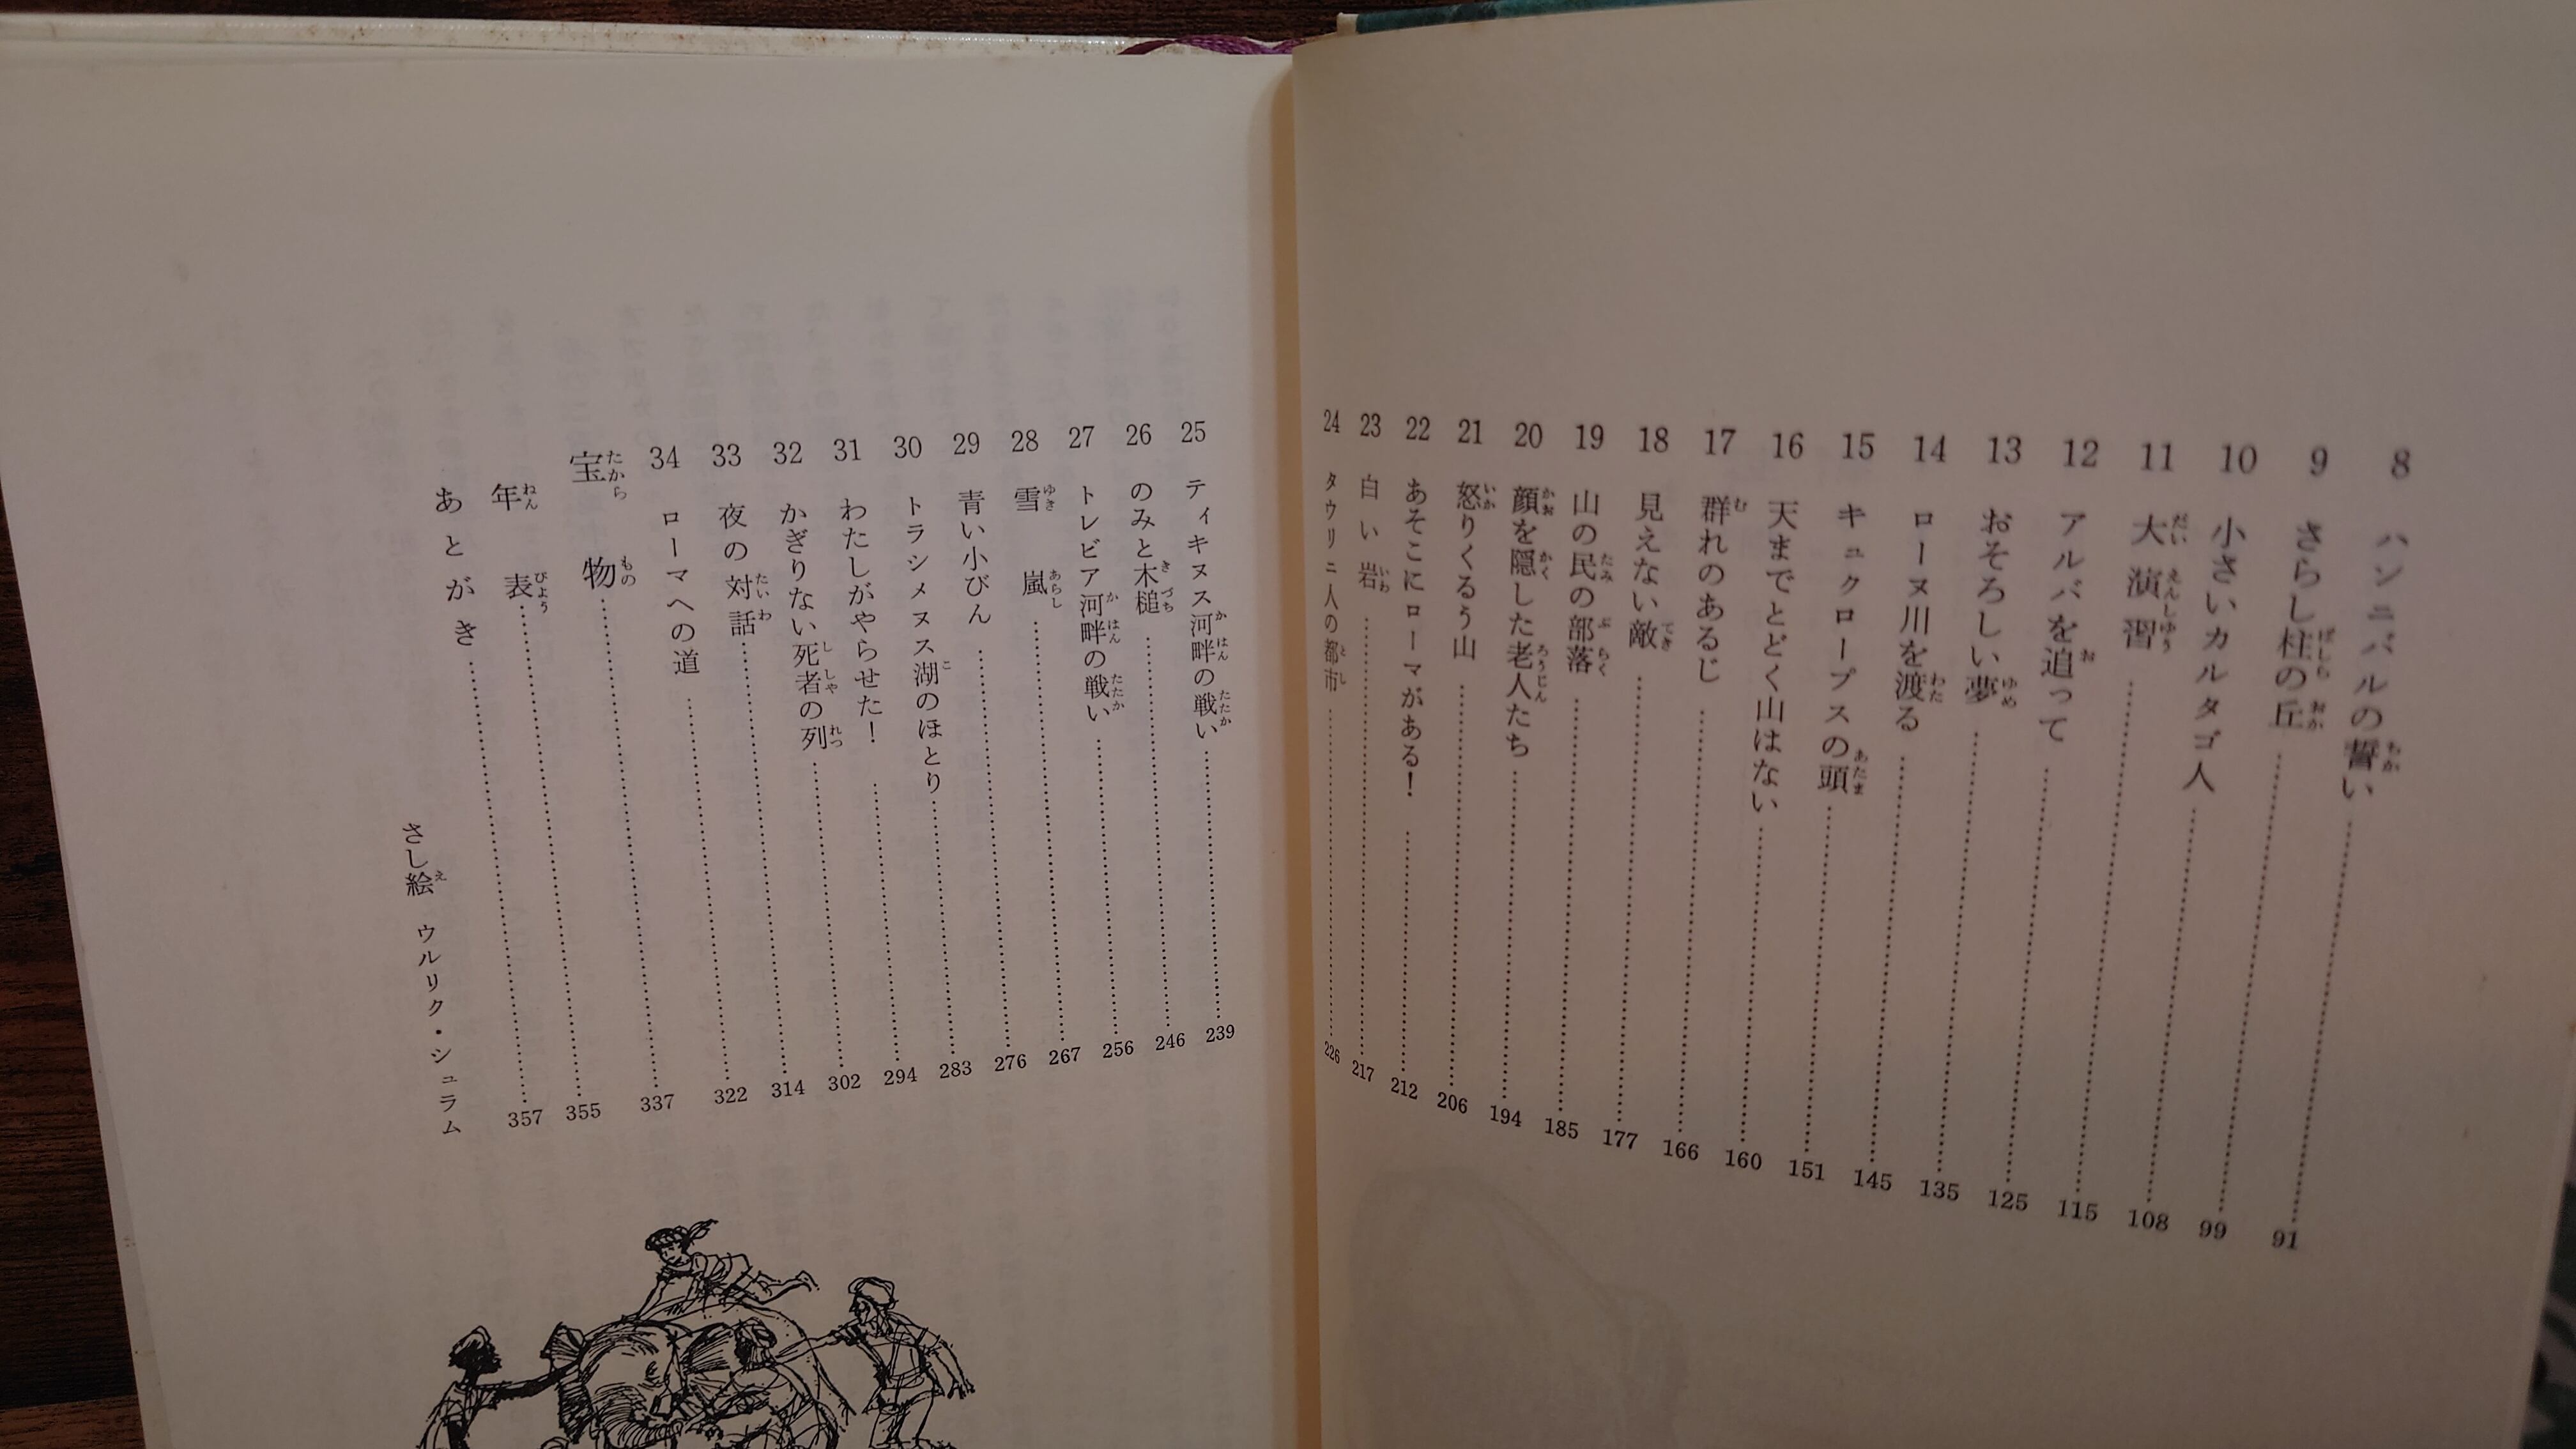 8 ハンニバルの誓い 91
9 さらし柱の丘 99
10 小さいカルタゴ人 108
11 大演習 115
12 アルバを追って 125
13 おそろしい夢 135
14 ローヌ川を渡る 145
15 キュクロープスの頭 151
16 天までとどく山はない 160
17 群れのあるじ 166
18 見えない敵 177
19 山の民の部落 185
20 顔を隠した老人たち 194
21 怒りくるう山 206
22 あそこにローマがある! 212
23 白い岩 217
24 タウリニ人の都市 226
25 ティキヌス河畔の戦い 239
26 のみと木槌 246
27 トレビア河畔の戦い 256
28 雪嵐 267
29 青い小びん 276
30 トラシメヌス湖のほとり 283
31 わたしがやらせた! 294
32 かぎりない死者の列 302
33 夜の対話 314
34 ローマへの道 322
宝物 337
年表 355
あとがき 357
さし絵 ウルリク・シュラム